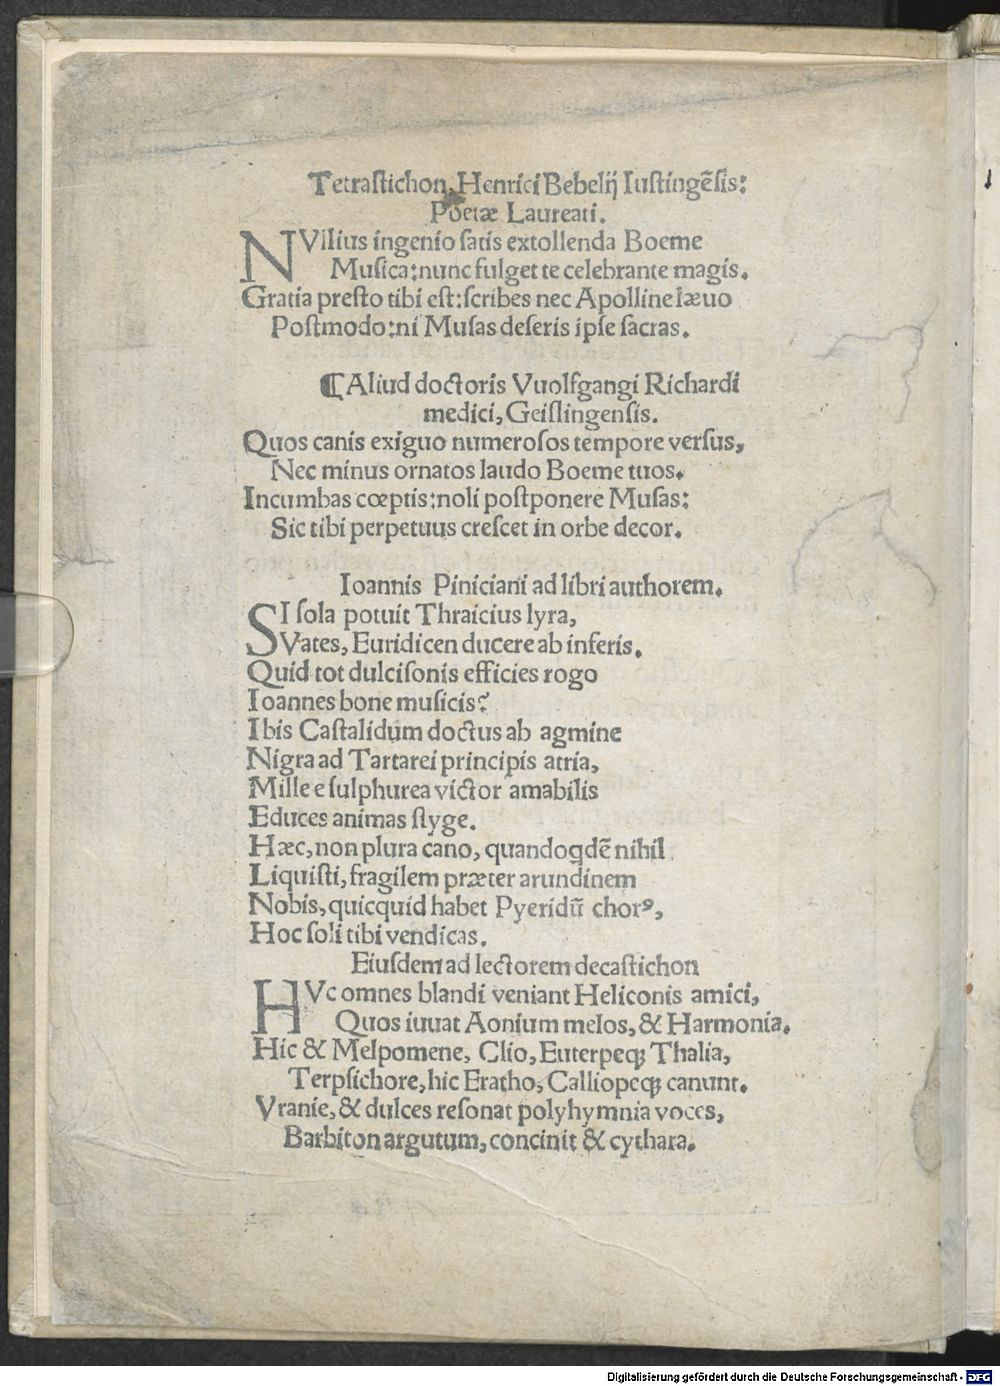 Tetraſtichon, Henrici Bebelij Iuſtingẽſis:
Poetæ Laureati.
NVllius ingenio ſatis extollenda Boeme
Muſica: nunc fulget te celebrante magis.
Gratia preſto tibi eſt: ſcribes nec Apolline læuo
Poſtmodo: ni Muſas deſeris ipſe ſacras.
¶ Aliud doctoris Vuolfgangi Richardi
medici, Geiſlingenſis.
Quos canis exiguo numeroſos tempore verſus,
Nec minus ornatos laudo Boeme tuos.
Incumbas cœptis: noli poſtponere Muſas:
Sic tibi perpetuus creſcet in orbe decor.
Ioannis Piniciani ad libri authorem.
SI ſola potuit Thraicius lyra,
Vates, Euridicen ducere ab inferis.
Quid tot dulciſonis efficies rogo
Ioannes bone muſicis?
Ibis Caſtalidum doctus ab agmine
Nigra ad Tartarei principis atria,
Mille e ſulphurea victor amabilis
Educes animas ſtyge.
Hæc, non plura cano, quandoꝗdẽ nihil
Liquiſti, fragilem præter arundinem
Nobis, quicquid habet Pyeridũ chorꝰ,
Hoc ſoli tibi vendicas.
Eiuſdem ad lectorem decaſtichon
HVc omnes blandi veniant Heliconis amici,
Quos iuuat Aonium melos, & Harmonia.
Hic & Melpomene, Clio, Euterpeqꝫ Thalia,
Terpſichore, hic Eratho, Calliopeqꝫ canunt.
Vranie, & dulces reſonat polyhymnia voces,
Barbiton argutum, concinit & cythara.
Digitalisierung gefördert durch die Deutsche Forschungsgemeinschaft - DFG